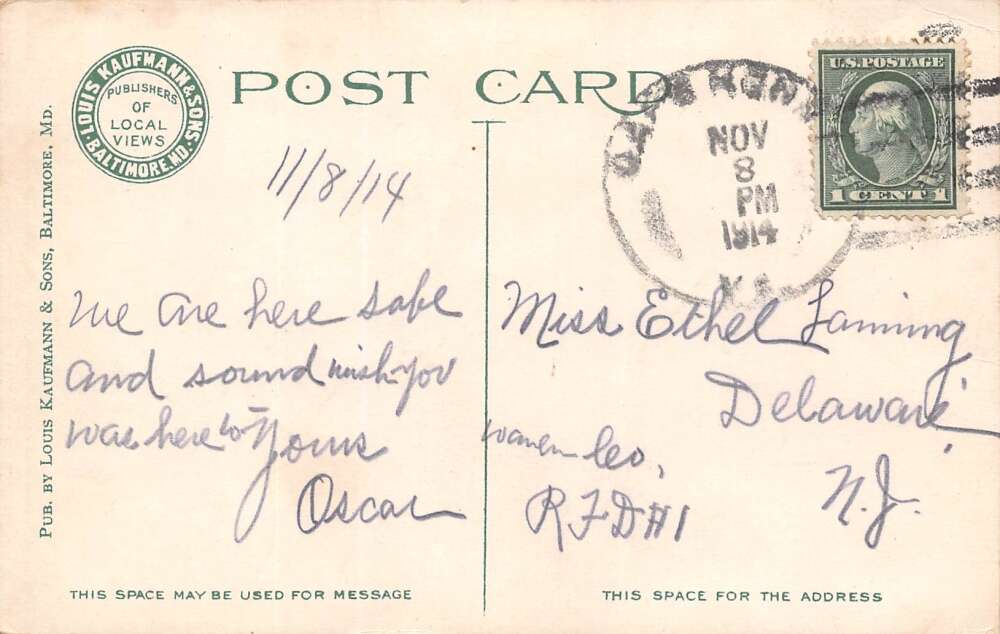 LOUIS KAUFMANN & SONS.
BALTIMORE, MD.
PUBLISHERS
OF
LOCAL
VIEWS
POST CARD
NOV
8
PM
1914
VA
U.S. POSTAGE
1 CENT 1
PUB. BY LOUIS KAUFMANN & SONS, BALTIMORE, MD.
11/8/14
We are here safe
and sound wish you
was here to
Yours
Oscar
Miss Ethel Lanning
Delaware
Warren Co,
RFD#1
N.J.
THIS SPACE MAY BE USED FOR MESSAGE
THIS SPACE FOR THE ADDRESS